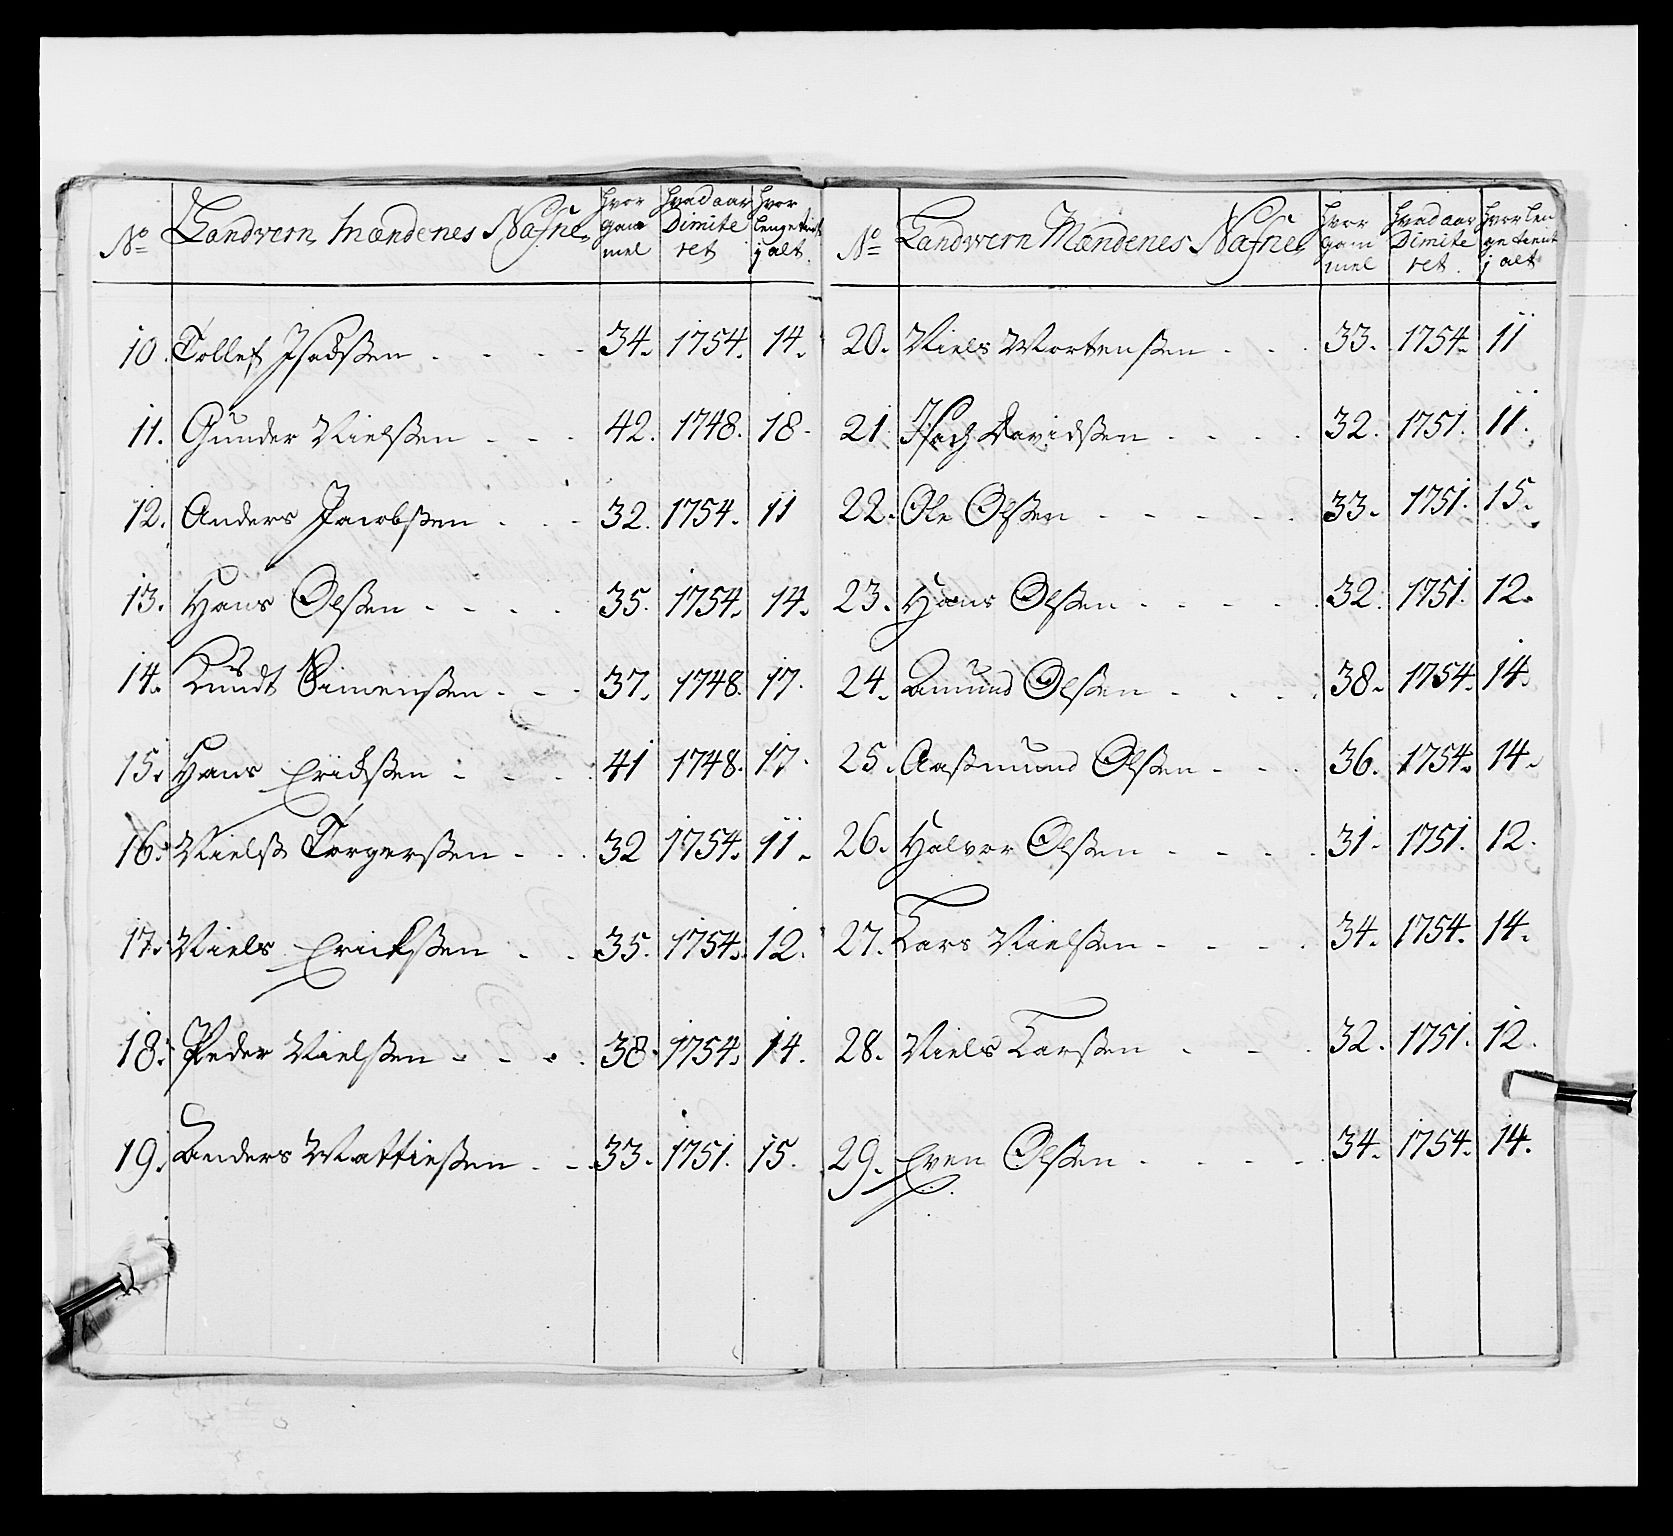 No Landvern Mændenes Nafne hvor gam mel hvad aar Dimite ret hvor lenge tient i alt
10. Tollef Isachsen 34. 1754. 14.
11. Gunder Nielsen 42. 1748. 18.
12. Anders Jacobsen 32. 1754. 11
13. Hans Olsen 35. 1754. 14.
14. Knudt Simensen 37. 1748. 17.
15. Hans Ericksen 41 1748. 17.
16. Niels Torgersen 32 1754. 11.
17. Niels Ericksen 35. 1754. 12.
18. Peder Nielsen 38. 1754. 14.
19. Anders Mattiesen 33. 1751. 15.
No Landvern Mændenes Nafne hvor gam mel hvad aar Dimite ret. hvor len ge tient i alt
20. Niels Mortensen 33. 1754. 11
21 Isach Davidsen 32. 1751. 11.
22. Ole Olsen 33. 1751. 15.
23. Hans Olsen 32. 1751. 12.
24. Amund Olsen 38. 1754. 14.
25. Aasmund Olsen 36. 1754. 14.
26. Halvor Olsen 31. 1751. 12.
27. Lars Nielsen 34. 1754. 14.
28. Niels Larsen 32. 1751. 12.
29. Even Olsen 34. 1754. 14.